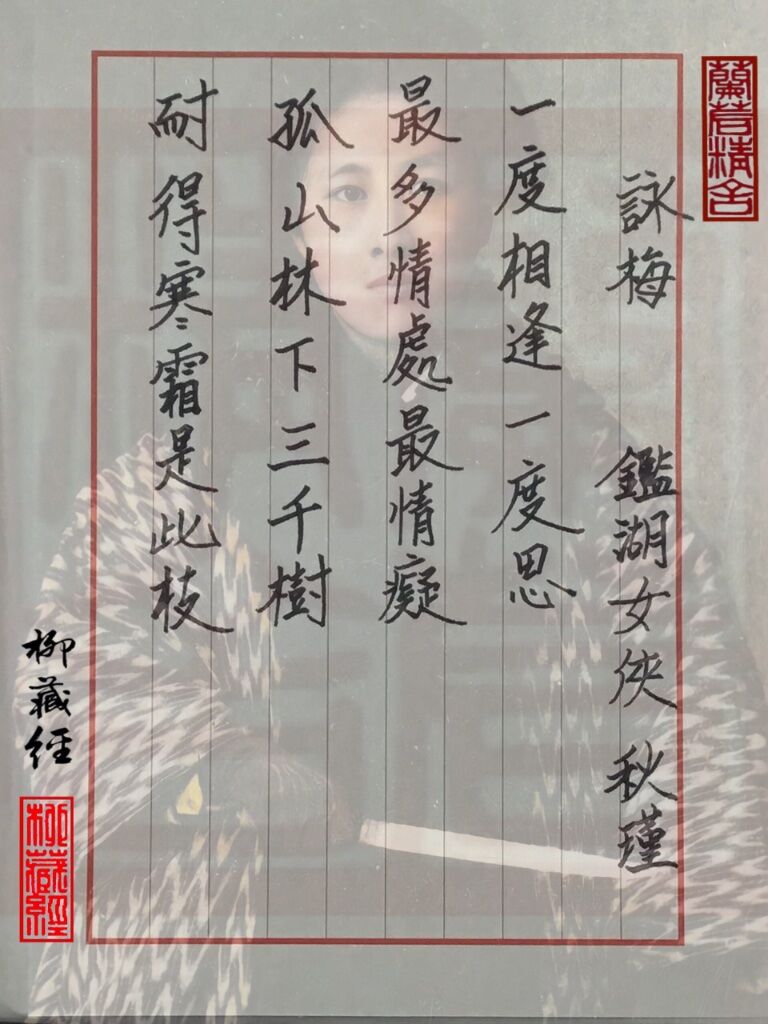 蘭萫精舍
詠梅 鑑湖女俠 秋瑾
一度相逢一度思
最多情處最情癡
孤山林下三千樹
耐得寒霜是此枝
柳藏經
柳藏經